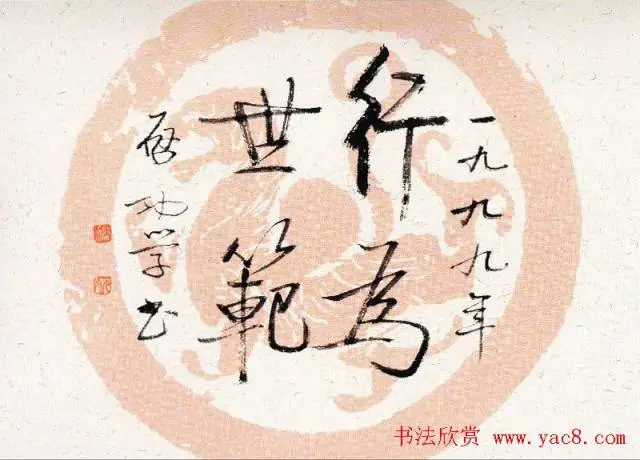 一九九九年
行為
世範
启功学书
书法欣赏 www.yac8.com